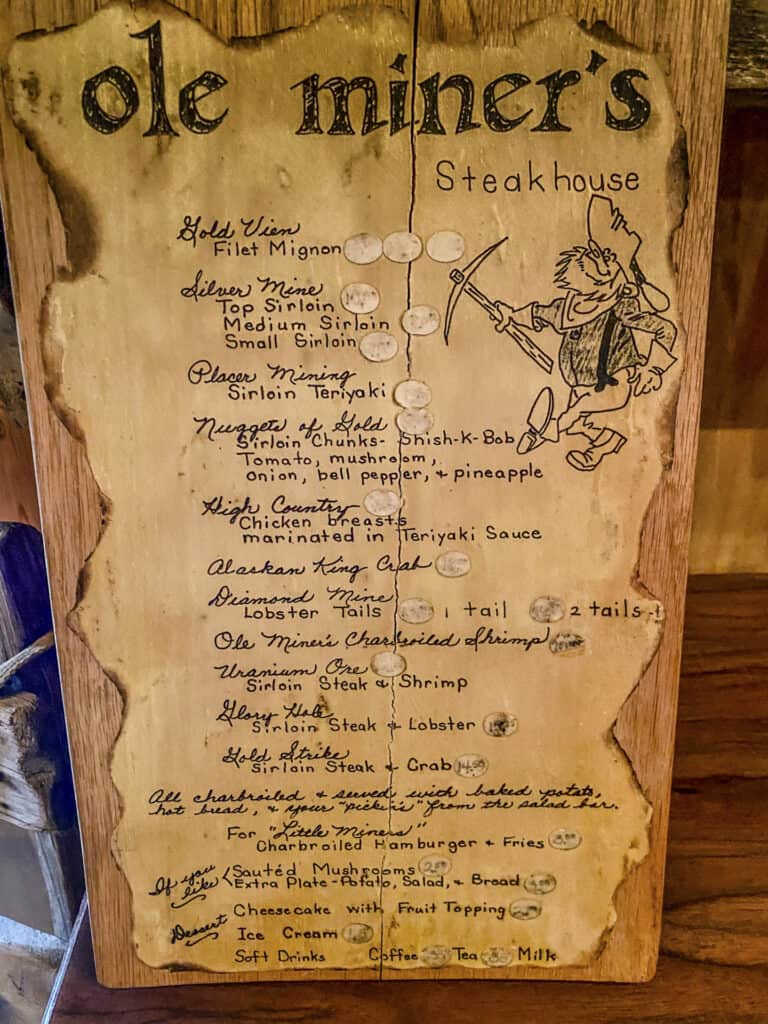 ole miner's
Steakhouse
Gold Vien
Filet Mignon
Silver Mine
Top Sirloin
Medium Sirloin
Small Sirloin
Placer Mining
Sirloin Teriyaki
Nuggets of Gold
Sirloin Chunks- Shish-K-Bob
Tomato, mushroom,
onion, bell pepper, + pineapple
High Country
Chicken breasts
marinated in Teriyaki Sauce
Alaskan King Crab
Diamond Mine
Lobster Tails 1 tail 2 tails
Ole Miner's Charbroiled Shrimp
Uranium Ore
Sirloin Steak & Shrimp
Glory Hole
Sirloin Steak + Lobster
Gold Strike
Sirloin Steak + Crab 14.50
All charbroiled + served with baked potato,
hot bread, + your "pickin's" from the salad bar.
For "Little Miners"
Charbroiled Hamburger + Fries
If you like
Sautéd Mushrooms
Extra Plate-Potato, Salad, + Bread
Dessert
Cheesecake with Fruit Topping
Ice Cream
Soft Drinks Coffee Tea Milk